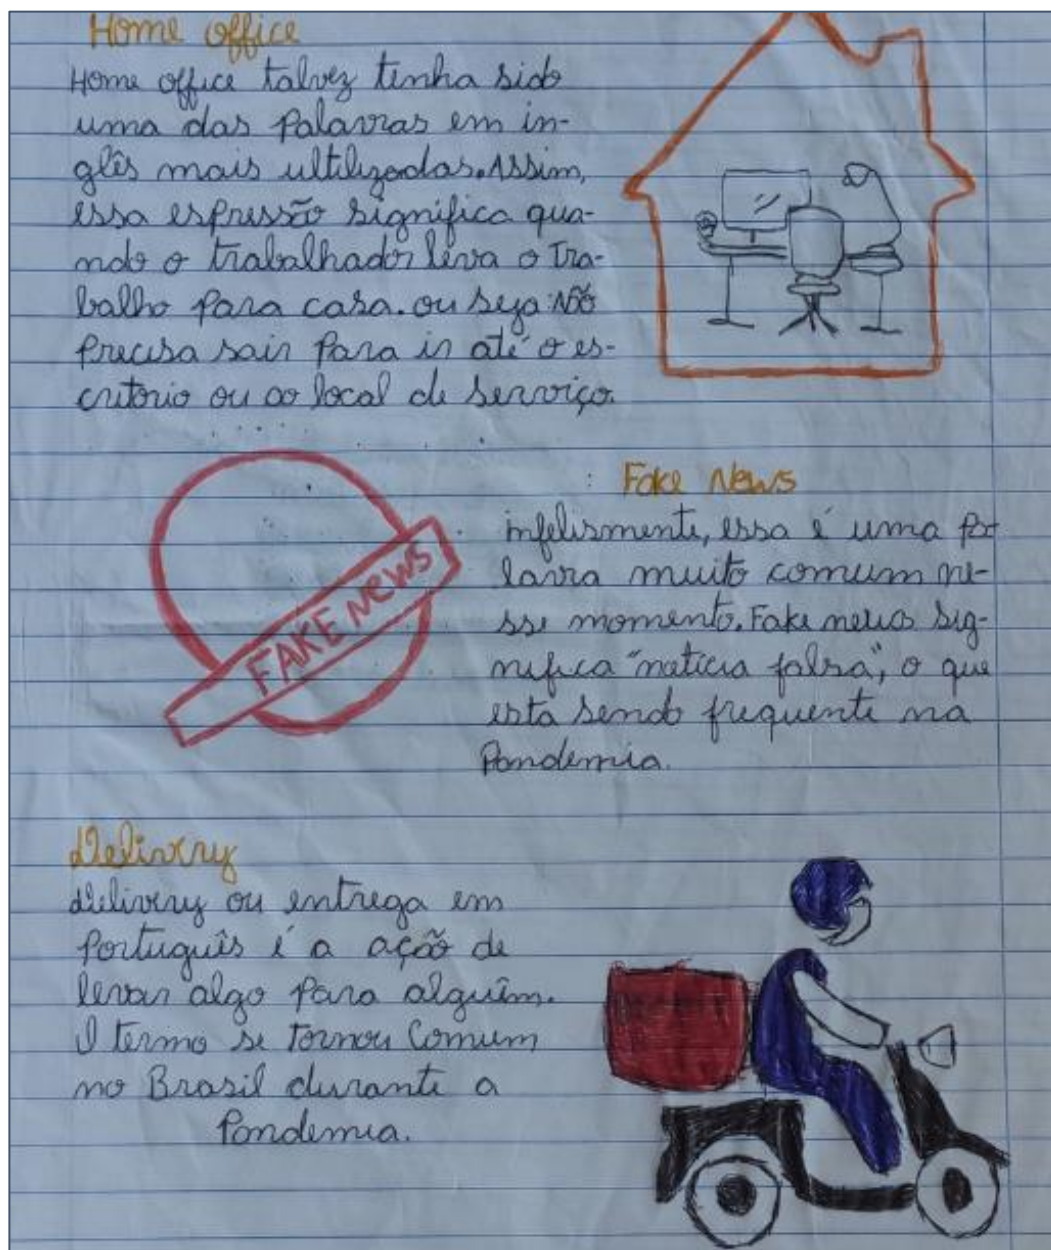 Home office
Home office talvez tenha sido
uma das palavras em in-
glês mais ultilizadas. Assim,
essa espressão significa qua-
ndo o trabalhador leva o tra-
balho para casa. ou seja: não
precisa sair para ir até o es-
critorio ou ao local de serviço.
Fake News
infelismente, essa é uma pa
lavra muito comum ne-
sse momento. Fake news sig-
nifica "noticia falsa", o que
esta sendo frequente na
Pandemia.
FAKE NEWS
Delivery
delivery ou entrega em
Português é a ação de
levar algo para alguém.
O termo se tornou comum
no Brasil durante a
Pandemia.